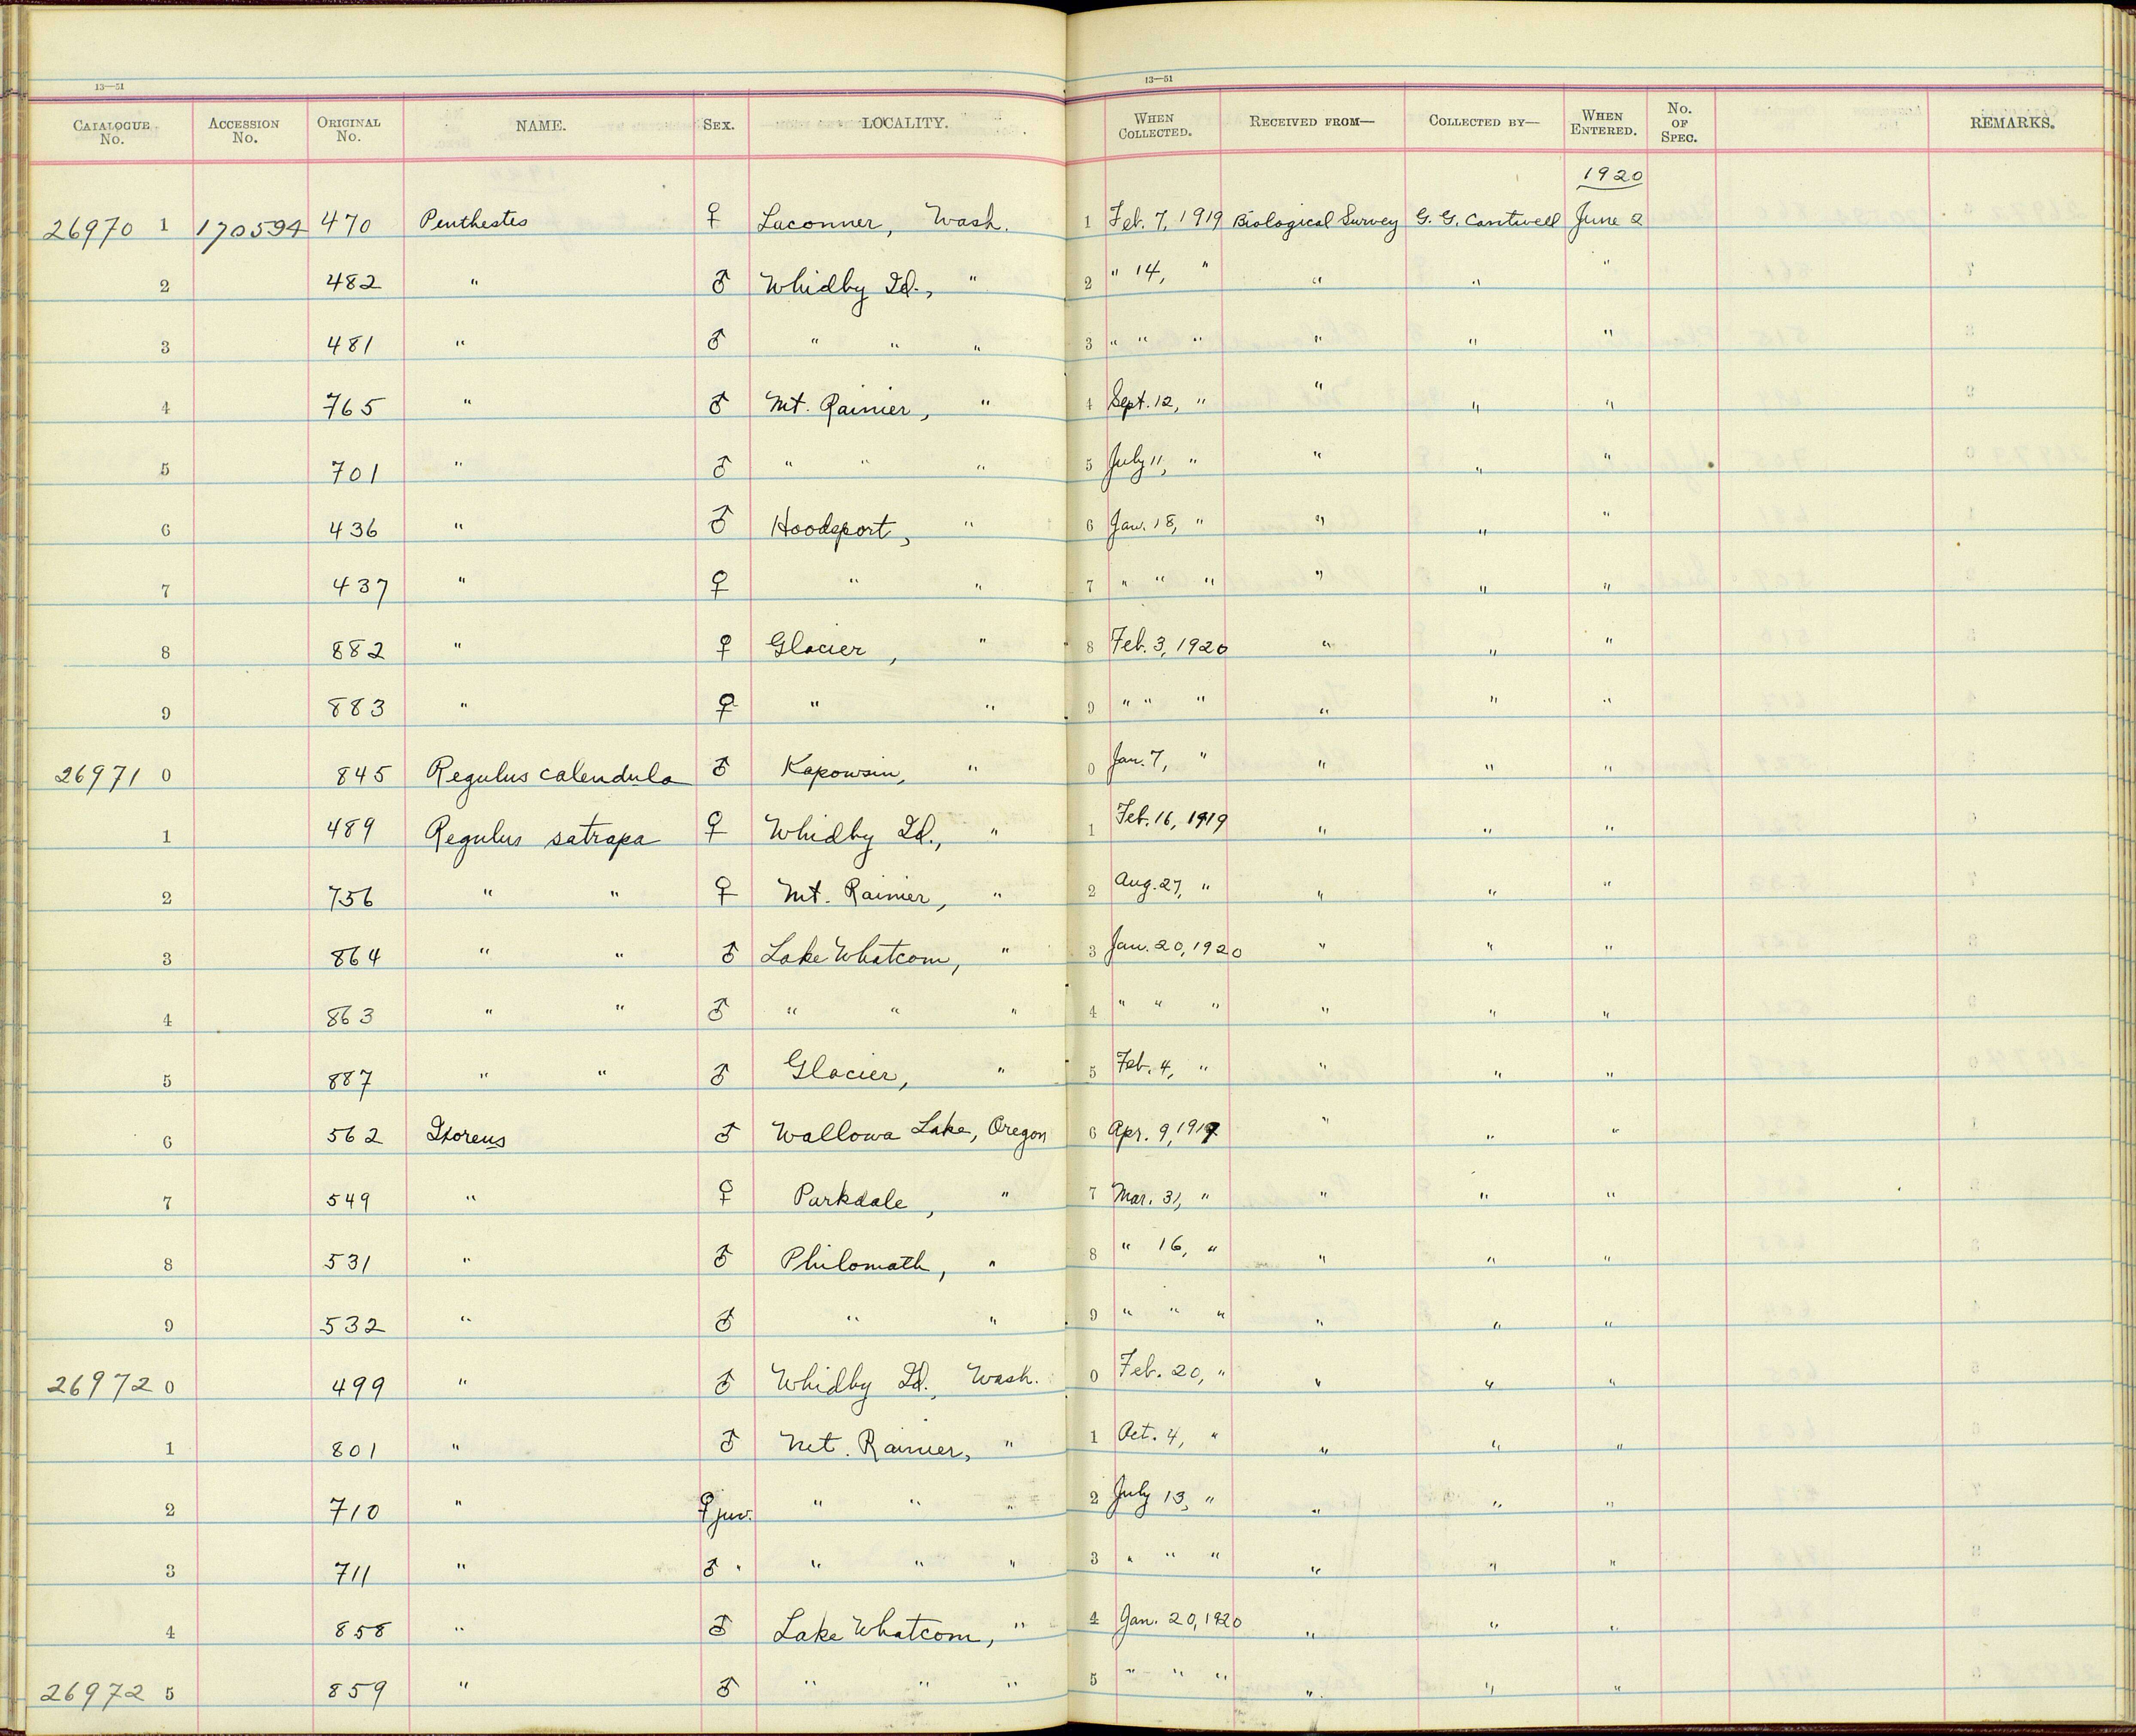 13—51 13—51
CATALOGUE No. ACCESSION No. ORIGINAL No. NAME. SEX. LOCALITY. WHEN COLLECTED. RECEIVED FROM— COLLECTED BY— WHEN ENTERED. No. OF SPEC. REMARKS.
1920
26970 1 170594 470 Penthestes ♀ Laconner, Wash. 1 Feb. 7, 1919 Biological Survey G. G. Cantwell June 2
2 482 " ♂ Whidby Id., " 2 " 14, " " " "
3 481 " ♂ " " " 3 " " " " " "
4 765 " ♂ Mt. Rainier, " 4 Sept. 12, " " " "
5 701 " ♂ " " " 5 July 11, " " " "
6 436 " ♂ Hoodsport, " 6 Jan. 18, " " " "
7 437 " ♀ " " 7 " " " " " "
8 882 " ♀ Glacier, " 8 Feb. 3, 1920 " " "
9 883 " ♀ " " 9 " " " " " "
26971 0 845 Regulus calendula ♂ Kapowsin, " 0 Jan. 7, " " " "
1 489 Regulus satrapa ♀ Whidby Id., " 1 Feb. 16, 1919 " " "
2 756 " " ♀ Mt. Rainier, " 2 Aug. 27, " " " "
3 864 " " ♂ Lake Whatcom, " 3 Jan. 20, 1920 " " "
4 863 " " ♂ " " " 4 " " " " " "
5 887 " " ♂ Glacier, " 5 Feb. 4, " " " "
6 562 Ixoreus ♂ Wallowa Lake, Oregon 6 Apr. 9, 1919 " " "
7 549 " ♀ Parkdale, " 7 Mar. 31, " " " "
8 531 " ♂ Philomath, " 8 " 16, " " " "
9 532 " ♂ " " 9 " " " " " "
26972 0 499 " ♂ Whidby Id., Wash. 0 Feb. 20, " " " "
1 801 " ♂ Mt. Rainier, " 1 Oct. 4, " " " "
2 710 " ♀ juv. " " " 2 July 13, " " " "
3 711 " ♂ " " " " 3 " " " " " "
4 858 " ♂ Lake Whatcom, " 4 Jan. 20, 1920 " " "
26972 5 859 " ♂ " " " 5 " " " " " "